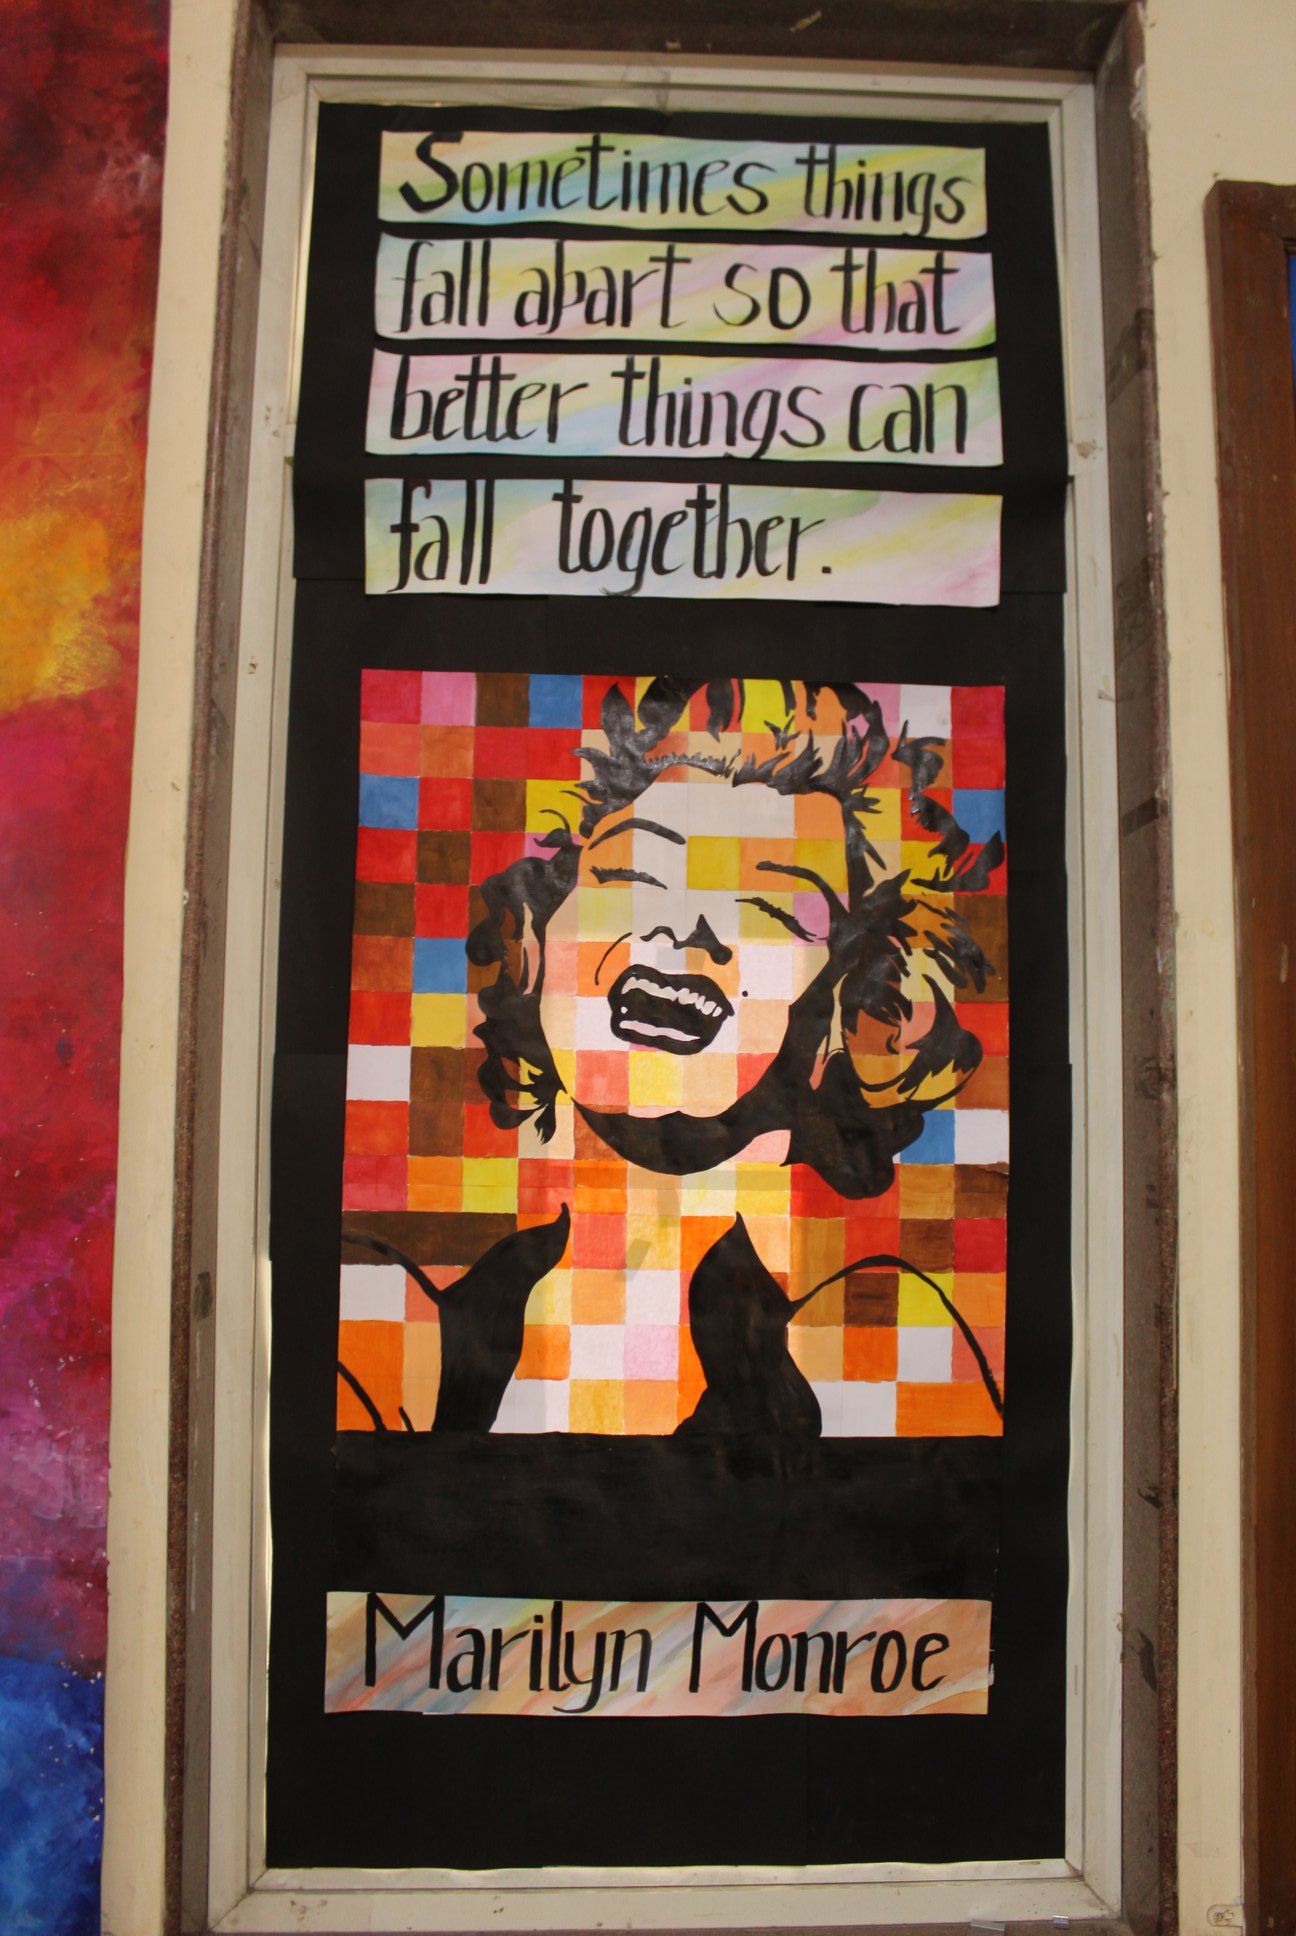 Sometimes things
fall apart so that
better things can
fall together.
Marilyn Monroe